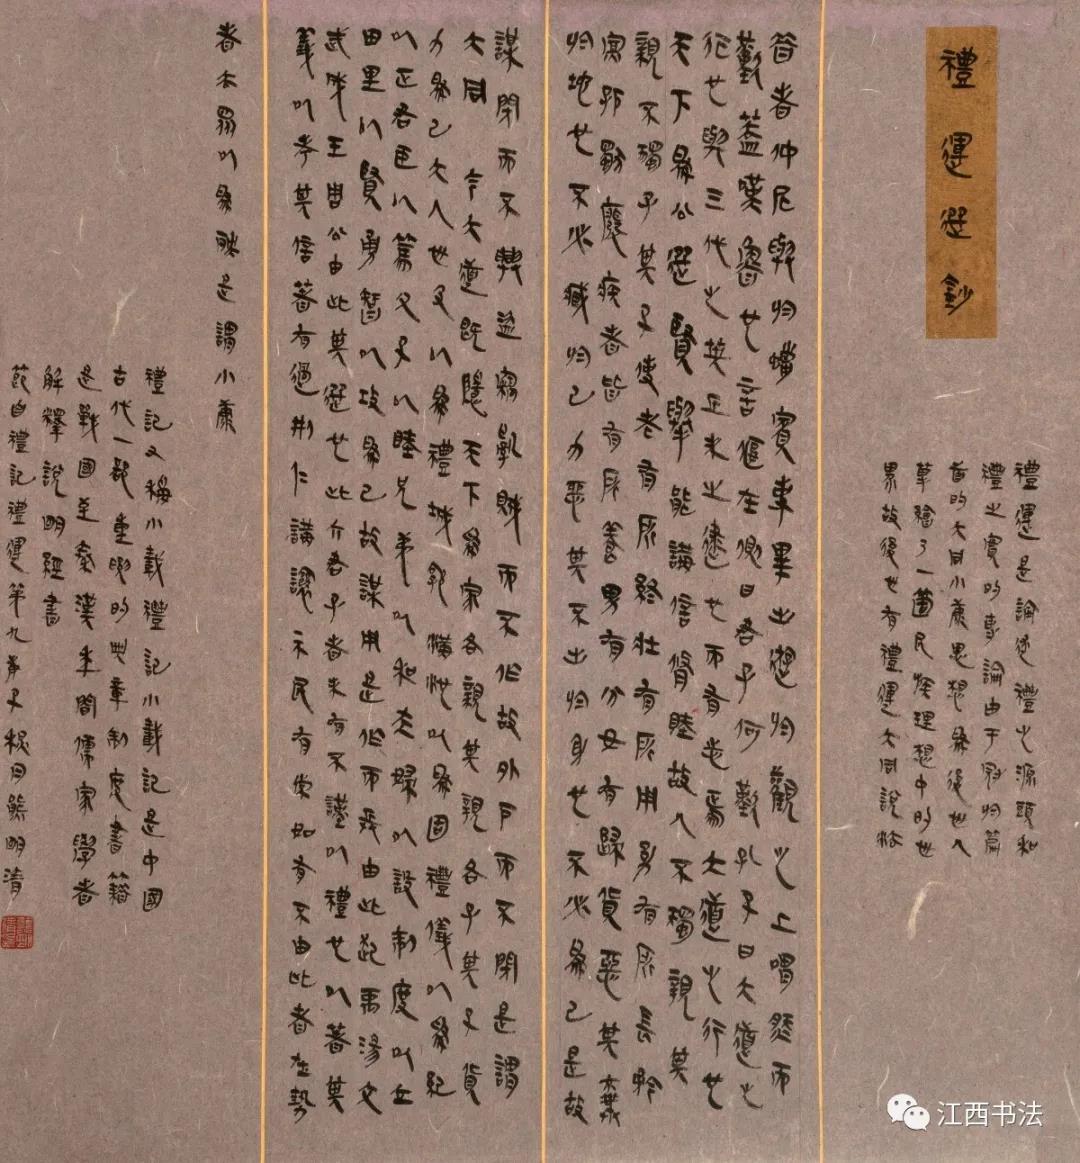 禮運選鈔
禮運是論述禮之源頭和
禮之實的專論由于冠於篇
首的大同小康思想為後世人
草繪了一箇民族理想中的世
界故後世有禮運大同說稱
昔者仲尼與於蜡賓事畢出遊於觀之上喟然而
歎蓋嘆魯也言偃在側曰君子何歎孔子曰大道之
行也與三代之英丘未之逮也而有志焉大道之行也
天下為公選賢舉能講信脩睦故人不獨親其
親不獨子其子使老有所終壯有所用幼有所長矜
寡孤獨廢疾者皆有所養男有分女有歸貨惡其棄
於地也不必藏於己力惡其不出於身也不必為己是故
謀閉而不興盜竊亂賊而不作故外戶而不閉是謂
大同 今大道既隱天下為家各親其親各子其子貨
力為己大人世及以為禮城郭溝池以為固禮儀以為紀
以正君臣以篤父子以睦兄弟以和夫婦以設制度以立
田里以賢勇智以功為己故謀用是作而兵由此起禹湯文
武成王周公由此其選也此六君子者未有不謹以禮也以著其
義以考其信著有過刑仁講讓示民有常如有不由此者在勢
者去眾以為殃是謂小康
禮記又稱小戴禮記小戴記是中國
古代一部重要的典章制度書籍
是戰國至秦漢年間儒家學者
解釋說明經書
節自禮記禮運第九庚子秋月熊明清
江西书法